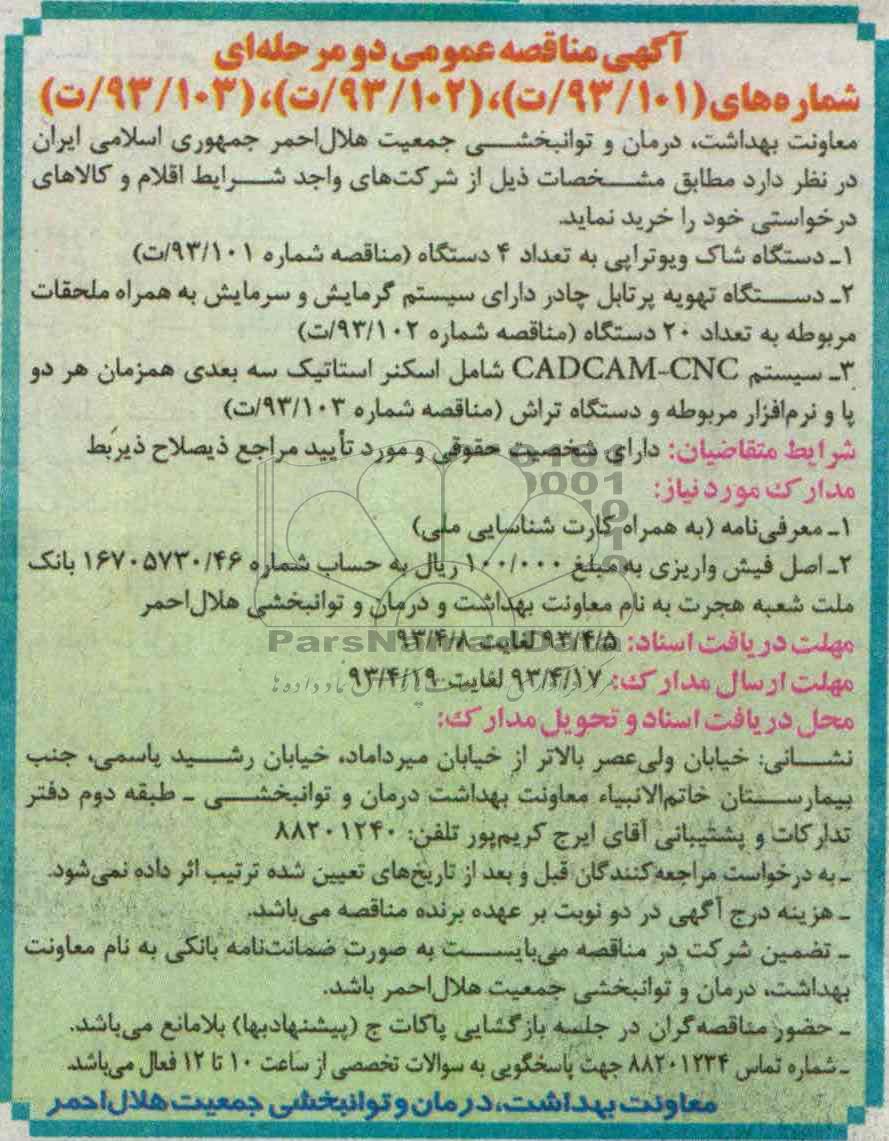 آگهی مناقصه عمومی دو مرحله‌ای
شماره‌های (۹۳/۱۰۱/ت)، (۹۳/۱۰۲/ت)، (۹۳/۱۰۳/ت)
معاونت بهداشت، درمان و توانبخشی جمعیت هلال‌احمر جمهوری اسلامی ایران
در نظر دارد مطابق مشخصات ذیل از شرکت‌های واجد شرایط اقلام و کالاهای
درخواستی خود را خرید نماید.
۱ـ دستگاه شاک ویوتراپی به تعداد ۴ دستگاه (مناقصه شماره ۹۳/۱۰۱/ت)
۲ـ دستگاه تهویه پرتابل چادر دارای سیستم گرمایش و سرمایش به همراه ملحقات
مربوطه به تعداد ۲۰ دستگاه (مناقصه شماره ۹۳/۱۰۲/ت)
۳ـ سیستم CADCAM-CNC شامل اسکنر استاتیک سه بعدی همزمان هر دو
پا و نرم‌افزار مربوطه و دستگاه تراش (مناقصه شماره ۹۳/۱۰۳/ت)
شرایط متقاضیان: دارای شخصیت حقوقی و مورد تأیید مراجع ذیصلاح ذیربط
مدارک مورد نیاز:
۱ـ معرفی‌نامه (به همراه کارت شناسایی ملی)
۲ـ اصل فیش واریزی به مبلغ ۱۰۰/۰۰۰ ریال به حساب شماره ۱۶۷۰۵۷۳۰/۴۶ بانک
ملت شعبه هجرت به نام معاونت بهداشت و درمان و توانبخشی هلال‌احمر
ParsNamadData
مهلت دریافت اسناد: ۹۳/۴/۵ لغایت ۹۳/۴/۸
مهلت ارسال مدارک: ۹۳/۴/۱۷ لغایت ۹۳/۴/۱۹
محل دریافت اسناد و تحویل مدارک:
نشانی: خیابان ولی‌عصر بالاتر از خیابان میرداماد، خیابان رشید یاسمی، جنب
بیمارستان خاتم‌الانبیاء معاونت بهداشت درمان و توانبخشی ـ طبقه دوم دفتر
تدارکات و پشتیبانی آقای ایرج کریم‌پور تلفن: ۸۸۲۰۱۲۴۰
ـ به درخواست مراجعه‌کنندگان قبل و بعد از تاریخ‌های تعیین شده ترتیب اثر داده نمی‌شود.
ـ هزینه درج آگهی در دو نوبت بر عهده برنده مناقصه می‌باشد.
ـ تضمین شرکت در مناقصه می‌بایست به صورت ضمانت‌نامه بانکی به نام معاونت
بهداشت، درمان و توانبخشی جمعیت هلال‌احمر باشد.
ـ حضور مناقصه‌گران در جلسه بازگشایی پاکات ج (پیشنهادبها) بلامانع می‌باشد.
ـ شماره تماس ۸۸۲۰۱۲۳۴ جهت پاسخگویی به سوالات تخصصی از ساعت ۱۰ تا ۱۲ فعال می‌باشد.
معاونت بهداشت، درمان و توانبخشی جمعیت هلال‌احمر